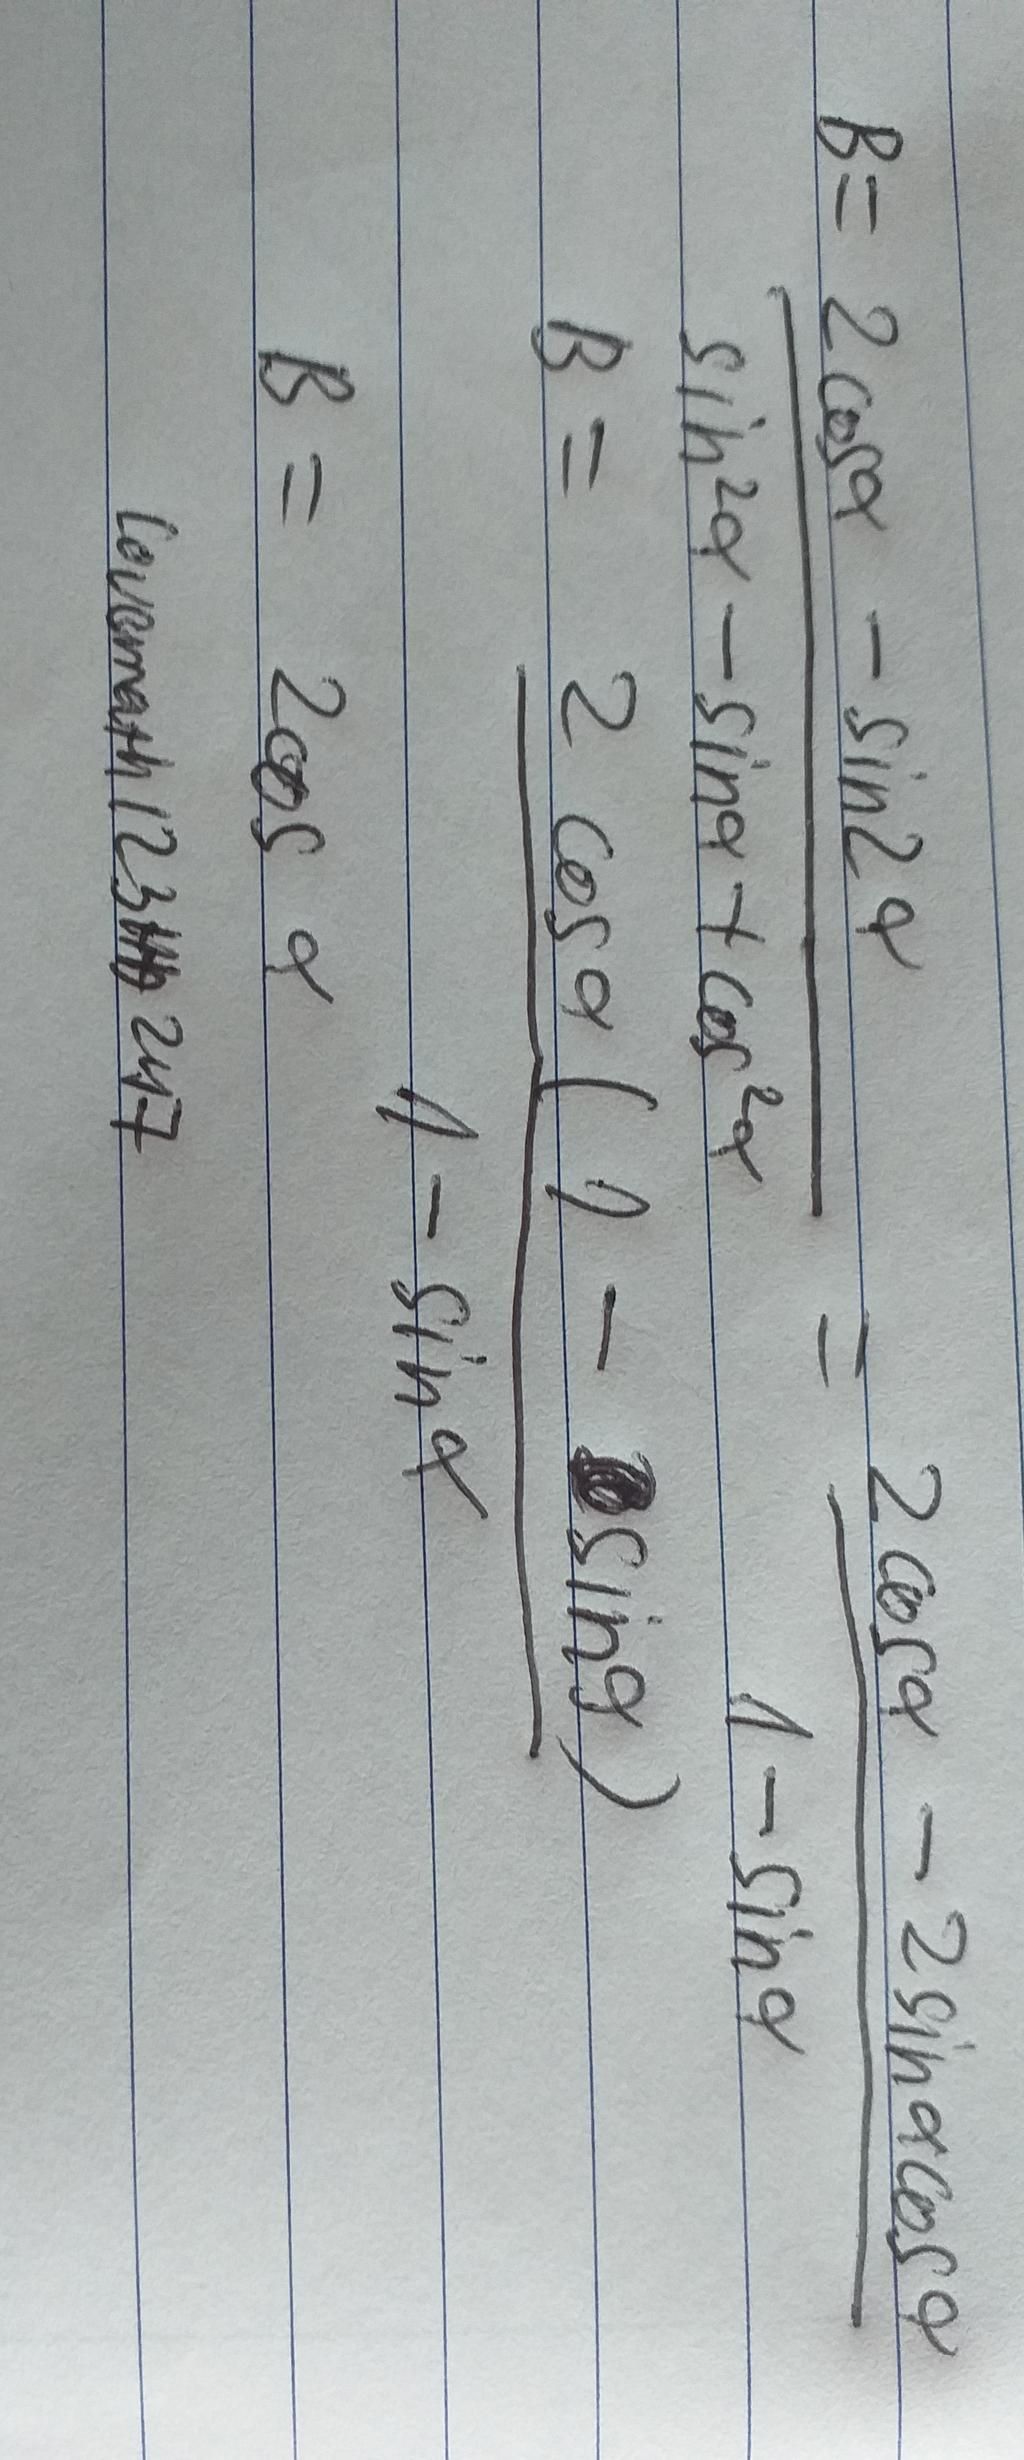 B = 2cosα - sin2α / sin²α - sinα + cos²α = 2cosα - 2sinαcosα / 1 - sinα
B = 2 cosα (1 - sinα) / 1 - sinα
B = 2cos α